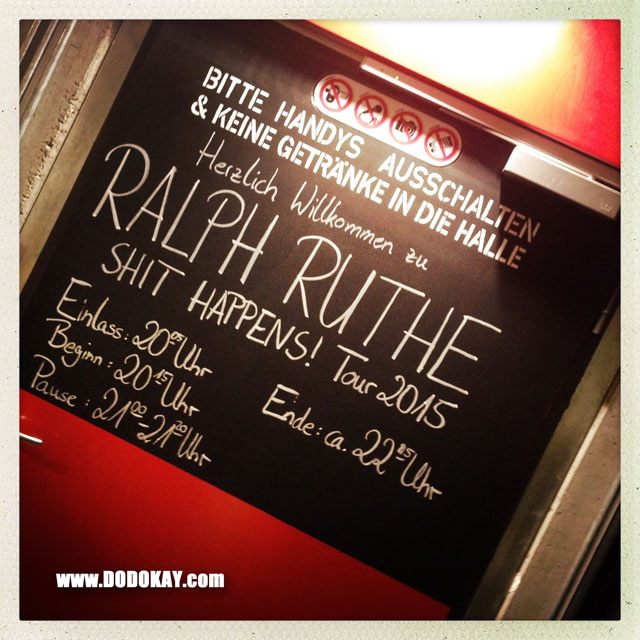 BITTE HANDYS AUSSCHALTEN
& KEINE GETRÄNKE IN DIE HALLE
Herzlich Willkommen zu
RALPH RUTHE
SHIT HAPPENS! Tour 2015
Einlass: 20⁰⁵ Uhr
Beginn: 20¹⁵ Uhr
Pause: 21⁰⁰-21²⁰ Uhr
Ende: ca. 22⁰⁵ Uhr
www.DODOKAY.com